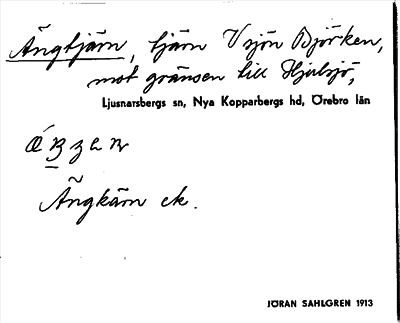 Ängtjärn, tjärn V sjön Björken,
mot gränsen till Hjulsjö,
Ljusnarsbergs sn, Nya Kopparbergs hd, Örebro län
Ängkärn ek.
JÖRAN SAHLGREN 1913